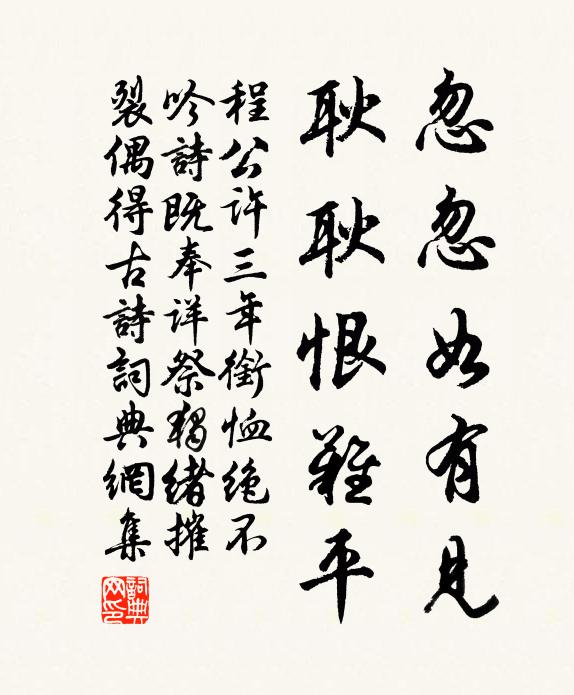 忽忽如有見
耿耿恨難平
程公許三年銜恤絶不
吟詩既奉詳祭獨緒摧
裂偶得古詩詞典網集
詞典
网印